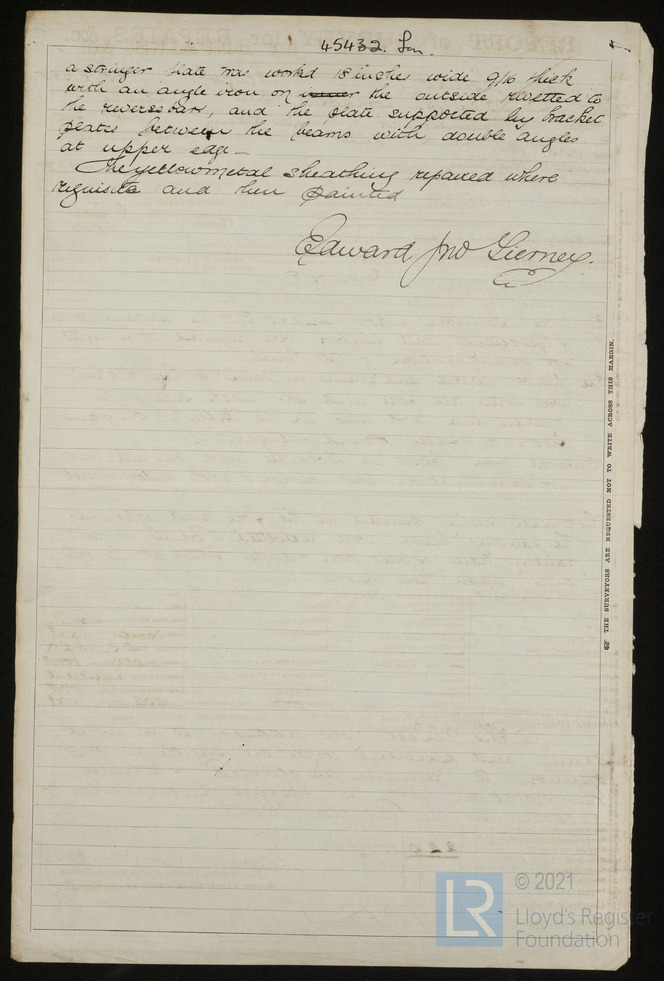 45432. Lon.
a stringer plate was worked 18 inches wide 9/16 thick
with an angle iron on the outside rivetted to
the reverse bars, and the plate supported by bracket
plates between the beams with double angles
at upper edge_
The yellowmetal sheathing repaired where
requisite and then painted
Edward Jno Tierney.
THE SURVEYORS ARE REQUESTED NOT TO WRITE ACROSS THIS MARGIN.
LR
© 2021
Lloyd's Register
Foundation